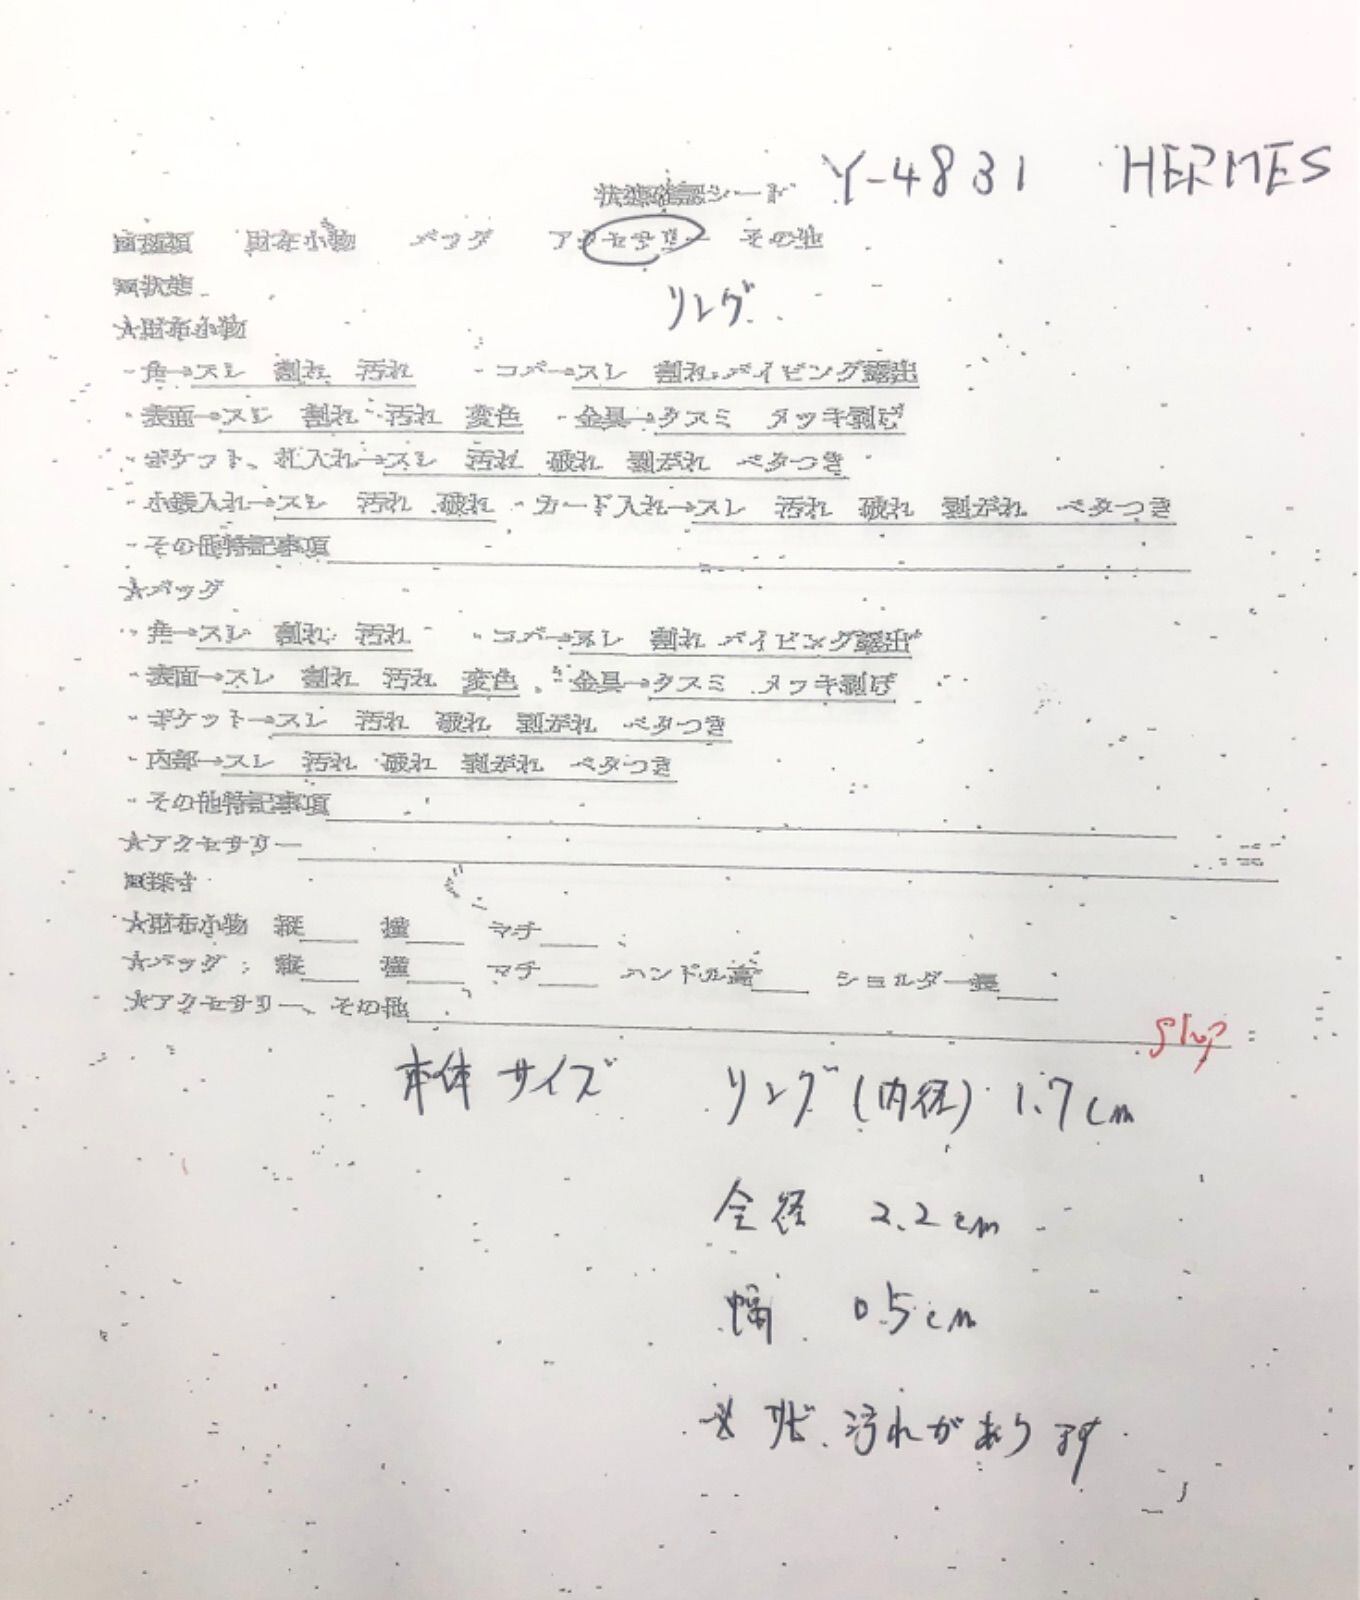 Y-4831 HERMES
状態確認シート
■種類 財布小物 バッグ アクセサリー その他
■状態
リング
★財布小物
・角→スレ 割れ 汚れ ・コバ→スレ 割れ パイピング露出
・表面→スレ 割れ 汚れ 変色 ・金具→クスミ メッキ剥げ
・ポケット、札入れ→スレ 汚れ 破れ 剥がれ ベタつき
・小銭入れ→スレ 汚れ 破れ ・カード入れ→スレ 汚れ 破れ 剥がれ ベタつき
・その他特記事項
★バッグ
・角→スレ 割れ 汚れ ・コバ→スレ 割れ パイピング露出
・表面→スレ 割れ 汚れ 変色 ・金具→クスミ メッキ剥げ
・ポケット→スレ 汚れ 破れ 剥がれ ベタつき
・内部→スレ 汚れ 破れ 剥がれ ベタつき
・その他特記事項
★アクセサリー
■採寸
★財布小物 縦 横 マチ
★バッグ 縦 横 マチ ハンドル高 ショルダー長
★アクセサリー、その他
本体サイズ リング(内径) 1.7cm
全径 2.2cm
幅 0.5cm
汚れがあります